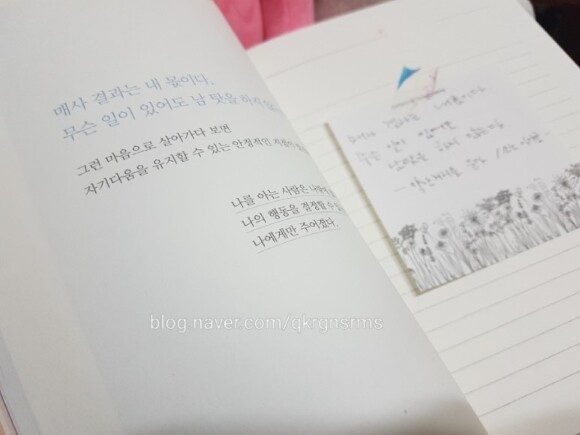 매사 결과는 내 몫이다.
무슨 일이 있어도 남 탓을 하지
그런 마음으로 살아가다 보면
자기다움을 유지할 수 있는 안정적인
나를 아는 사람은
나의 행동을 결정할 수
나에게만 주어졌다.
매사 결과는 내 몫이다
무슨 일이 있어도
남탓을 하지
blog.naver.com/qkrgnsrms